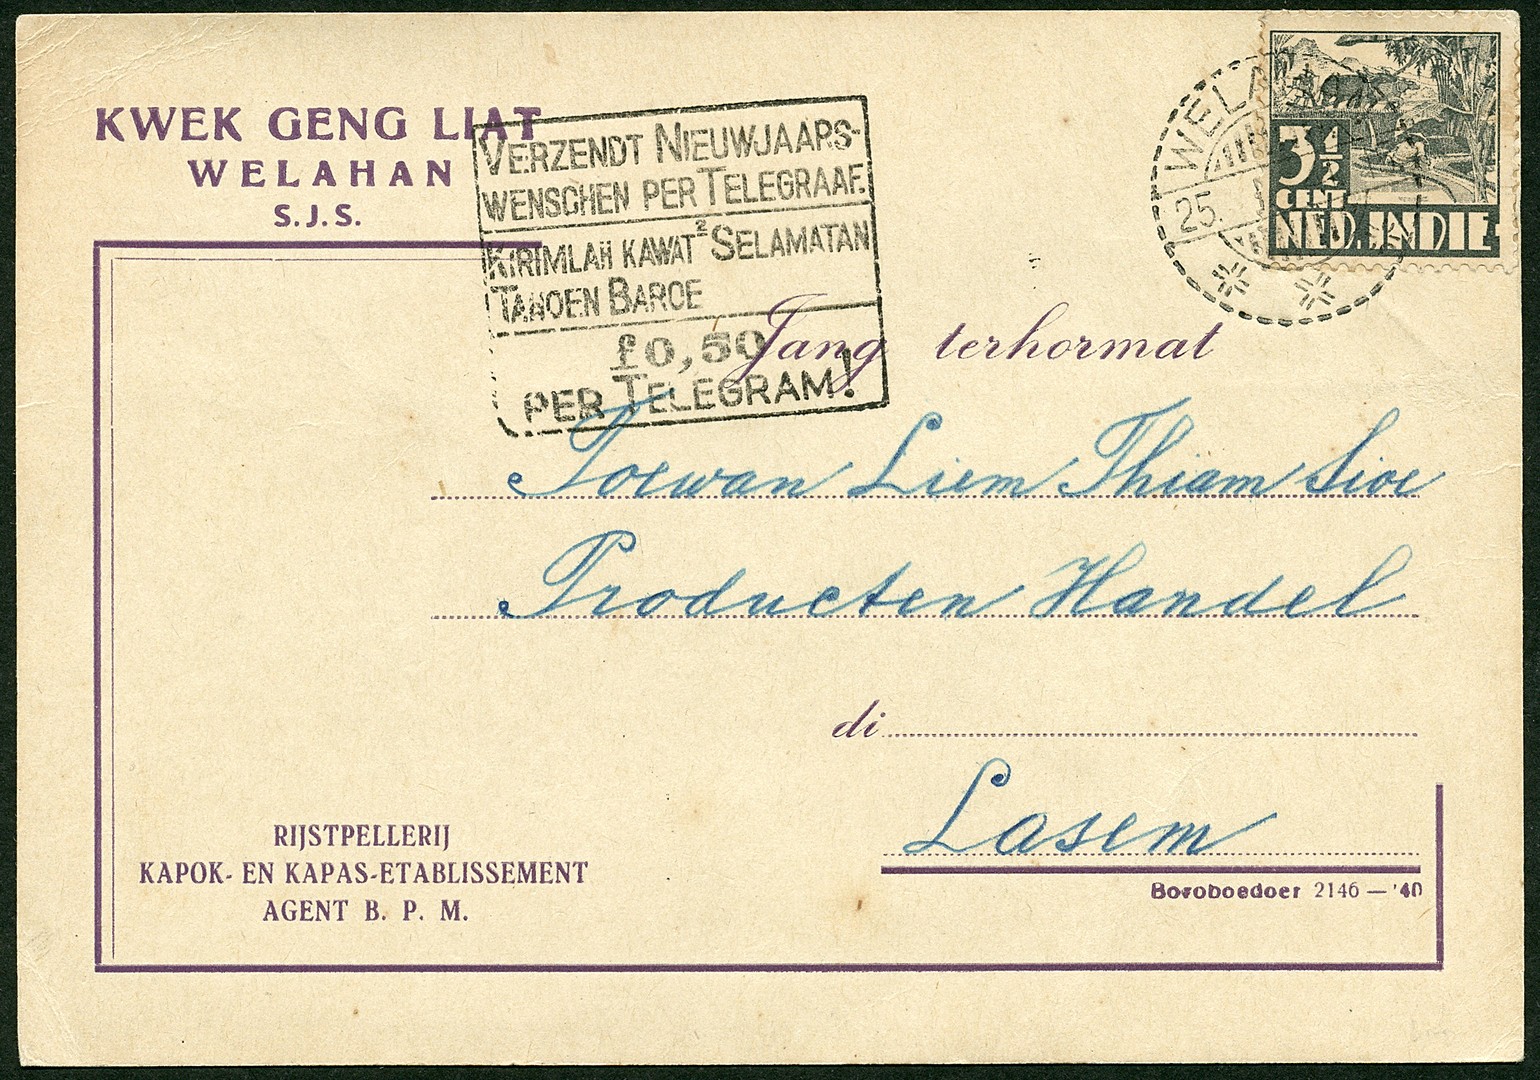 KWEK GENG LIAT
WELAHAN
S.J.S.
VERZENDT NIEUWJAARS-
WENSCHEN PER TELEGRAAF.
KIRIMLAH KAWAT² SELAMATAN
TAHOEN BAROE
f0,50
PER TELEGRAM!
25.
3 1/2
CENT
NED. INDIE
Jang terhormat
Toewan Liem Thiam Sioe
Producten Handel
di
Lasem
RIJSTPELLERIJ
KAPOK- EN KAPAS-ETABLISSEMENT
AGENT B. P. M.
Boroboedoer 2146 — '40